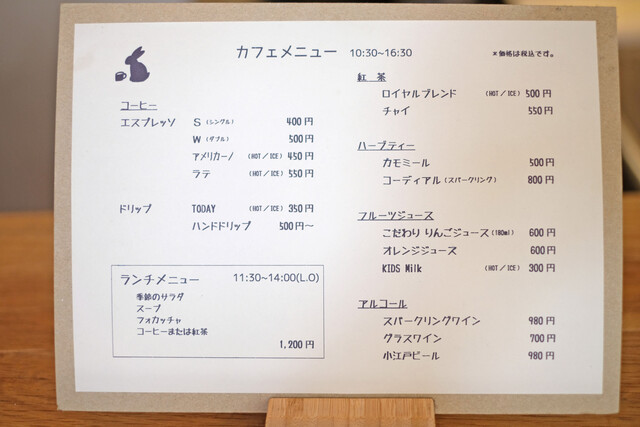 カフェメニュー 10:30~16:30
*価格は税込です。
コーヒー
エスプレッソ S (シングル) 400円
W (ダブル) 500円
アメリカーノ (HOT/ICE) 450円
ラテ (HOT/ICE) 550円
ドリップ TODAY (HOT/ICE) 350円
ハンドドリップ 500円～
ランチメニュー 11:30~14:00(L.O)
季節のサラダ
スープ
フォカッチャ
コーヒーまたは紅茶
1,200円
紅茶
ロイヤルブレンド (HOT/ICE) 500円
チャイ 550円
ハーブティー
カモミール 500円
コーディアル(スパークリング) 800円
フルーツジュース
こだわり りんごジュース(180ml) 600円
オレンジジュース 600円
KIDS Milk (HOT/ICE) 300円
アルコール
スパークリングワイン 980円
グラスワイン 700円
小江戸ビール 980円